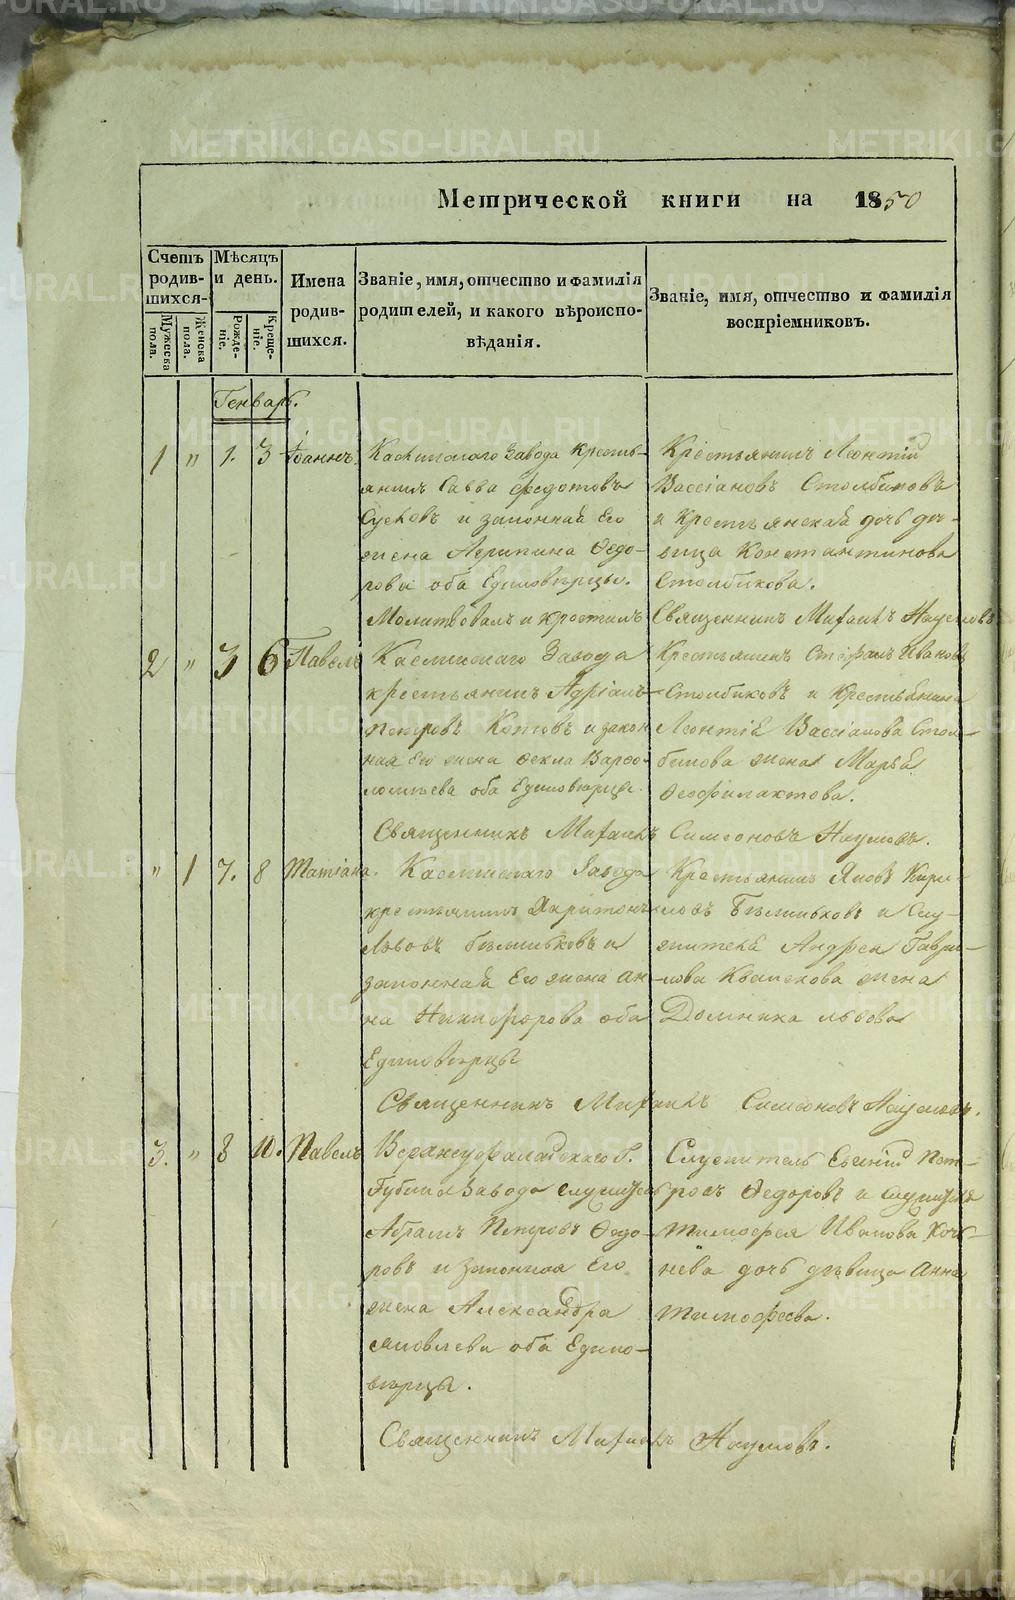 METRIKI.GASO-URAL.RU
Метрической книги на 1850
Счетъ родив-шихся.
Мужеска пола.
Женска пола.
Мѣсяцъ и день.
Рожде-ніе.
Креще-ніе.
Имена родив-шихся.
Званіе, имя, отчество и фамилія родителей, и какого вѣроиспо-вѣданія.
Званіе, имя, отчество и фамилія воспріемниковъ.
Генварь.
1 " 1. 3 Іоаннъ.
Каслинскаго Завода кресть-
янинъ Савва Федотовъ
Сусловъ и законная Его
жена Агрипина Ѳедо-
рова оба Единовѣрцы.
Крестьянинъ Леонтій
Вассіановъ Столбиковъ
и крестьянская дочь дѣ-
вица Константинова
Столбикова.
Молитвовалъ и крестилъ Священникъ Михаилъ Наумовъ
2 " 3 6 Павелъ
Каслинскаго Завода
крестьянинъ Адріанъ
Петровъ Котовъ и закон
ная Его жена Ѳекла Варѳо-
ломѣева оба Единовѣрцы.
Крестьянинъ Стефанъ Ивановъ
Столбиковъ и Крестьянина
Леонтія Вассіанова Стол-
бикова жена Марья
Ѳеофилактова.
Священникъ Михаилъ Симеоновъ Наумовъ.
" 1 7. 8 Татіана.
Каслинскаго Завода
крестьянинъ Харитонъ
Львовъ Бѣленьковъ и
законная Его жена Ан
на Никифорова оба
Единовѣрцы
Крестьянинъ Яковъ Кири-
ловъ Бѣленьковъ и Слу-
жителя Андрея Гаври-
лова жена
Домника Львова
Священникъ Михаилъ Симеоновъ Наумовъ.
3. " 8 10. Павелъ
Верхнеуфалейскаго Г.
Губина Завода служитель
Абрамъ Петровъ Ѳедо-
ровъ и законная Его
жена Александра
Яковлева оба Едино-
вѣрцы.
Служитель Евгеній Пет-
ровъ Ѳедоровъ и служителя
Тимофея Иванова Коч-
нева дочь дѣвица Анна
Тимофеева.
Священникъ Михаилъ Наумовъ.